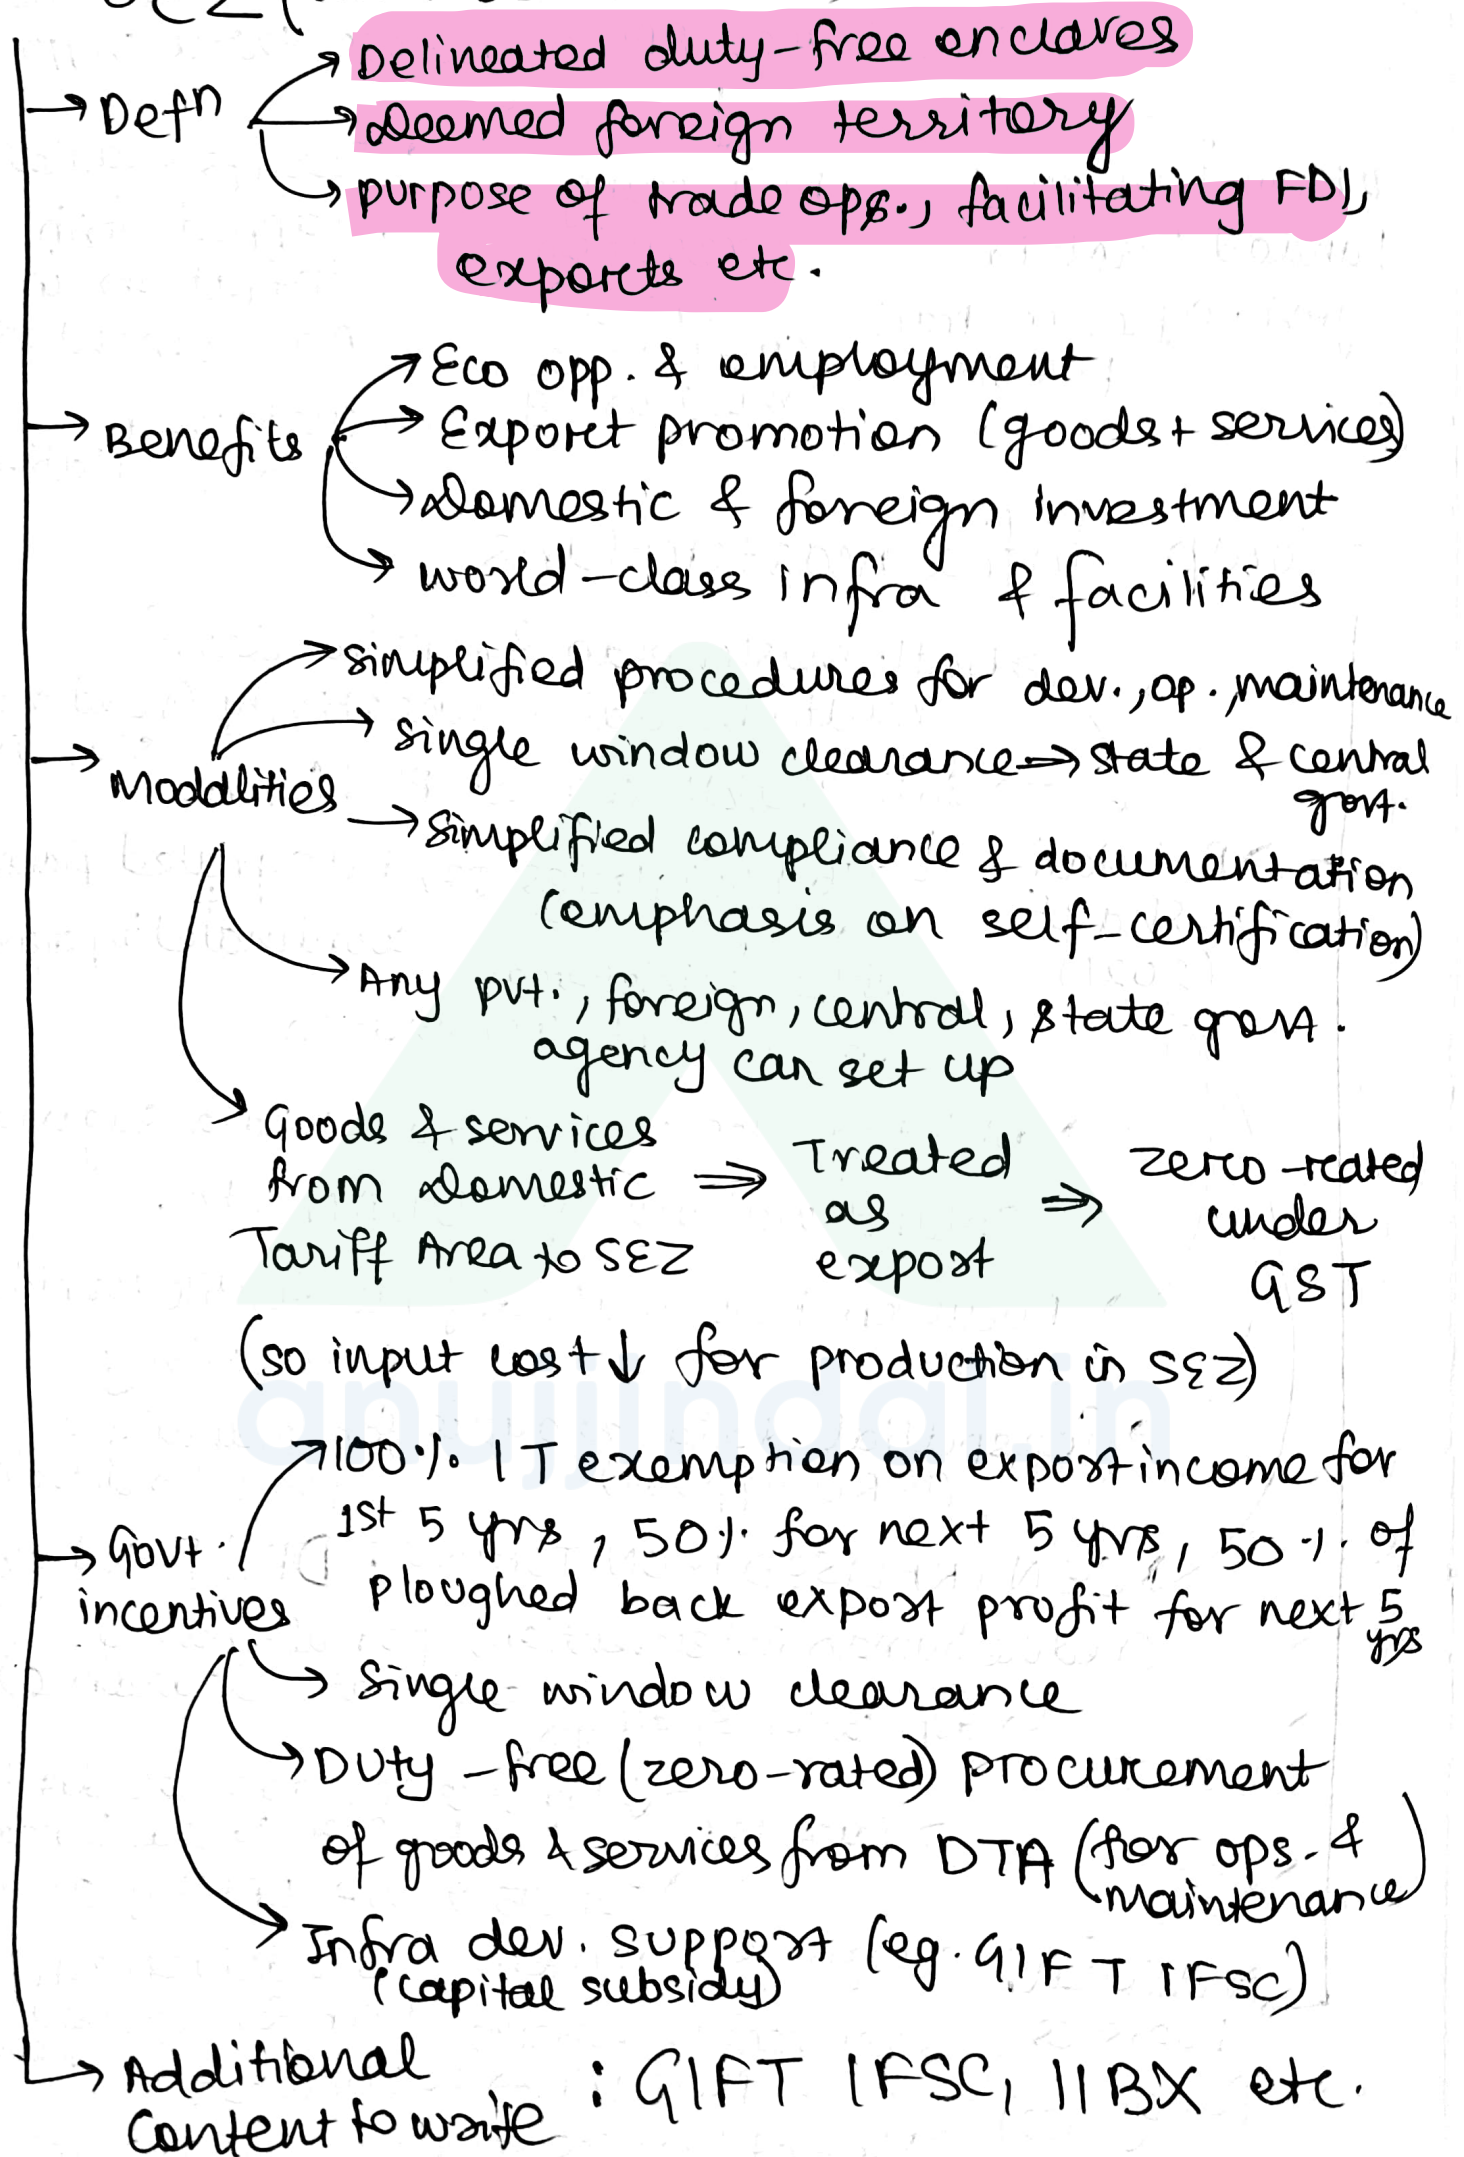 SEZ (
→ Defn
→ Delineated duty-free enclaves
→ Deemed foreign territory
→ purpose of trade ops., facilitating FDI,
exports etc.
→ Benefits
→ Eco opp. & employment
→ Export promotion (goods + services)
→ Domestic & foreign investment
→ world-class infra & facilities
→ Modalities
→ simplified procedures for dev., op., maintenance
→ single window clearance ⇒ state & central
govt.
→ simplified compliance & documentation
(emphasis on self-certification)
→ Any pvt., foreign, central, state govt.
agency can set up
→ Goods & services
from Domestic
Tariff Area to SEZ
⇒ Treated
as
export
⇒ zero-rated
under
GST
(so input cost ↓ for production in SEZ)
anujjindal.in
→ Govt.
incentives
→ 100% IT exemption on export income for
1st 5 yrs, 50% for next 5 yrs, 50% of
ploughed back export profit for next 5
yrs
→ Single window clearance
→ Duty-free (zero-rated) procurement
of goods & services from DTA (for ops. &
maintenance)
→ Infra dev. support (eg. GIFT IFSC)
(capital subsidy)
→ Additional
content to write
: GIFT IFSC, IIBX etc.